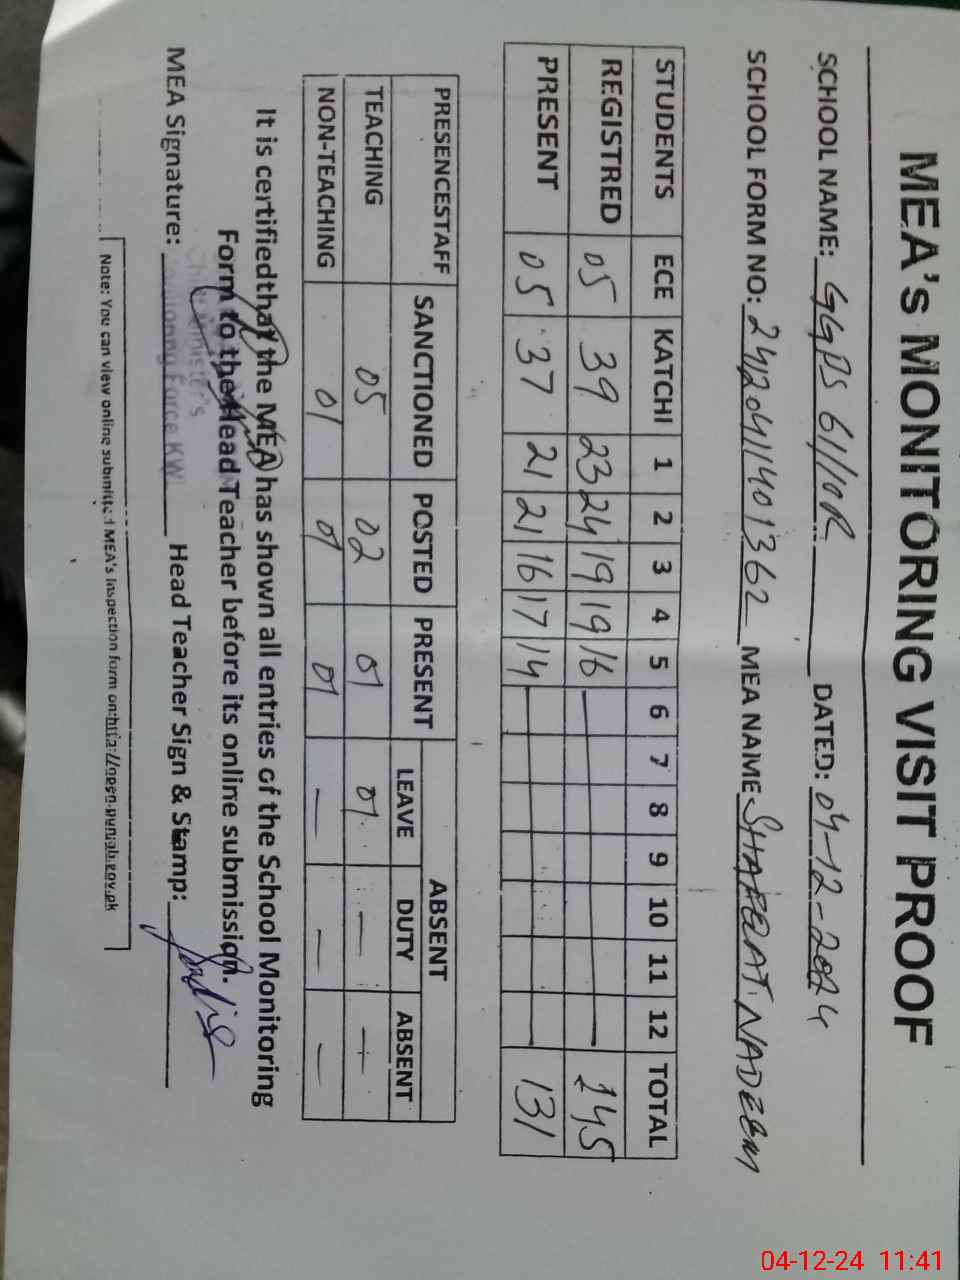 MEA's MONITORING VISIT PROOF
SCHOOL NAME: GGPS 61/10R DATED: 04-12-2024
SCHOOL FORM NO: 24120411401362 MEA NAME SHAFQAT NADEEM
STUDENTS ECE KATCHI 1 2 3 4 5 6 7 8 9 10 11 12 TOTAL
REGISTRED 05 39 23 24 19 19 16 145
PRESENT 05 37 21 21 16 17 14 131
PRESENCESTAFF SANCTIONED POSTED PRESENT ABSENT
LEAVE DUTY ABSENT
TEACHING 05 02 01 01 — —
NON-TEACHING 01 01 01 — — —
It is certifiedthat the MEA has shown all entries of the School Monitoring
Form to the Head Teacher before its online submission.
Chief Minister's
Monitoring Force KWL
MEA Signature: Head Teacher Sign & Stamp:
Note: You can view online submitted MEA's Inspection form on:http://open.punjab.gov.pk
04-12-24 11:41